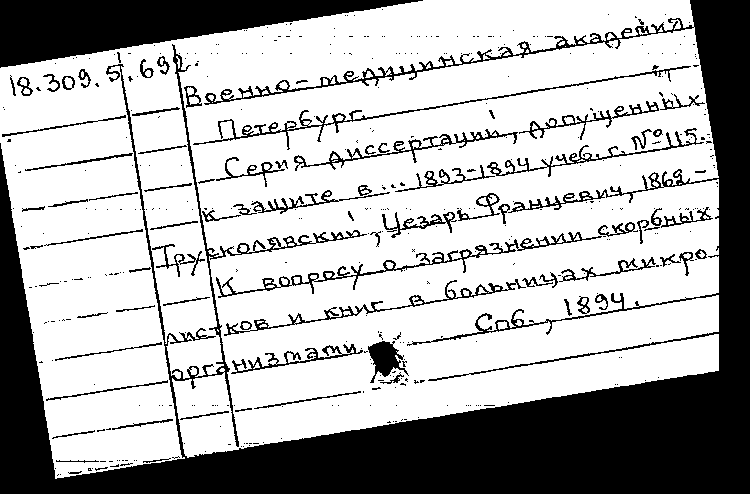 18.309.5.692.
Военно-медицинская академия.
Петербург.
Серия диссертаций, допущенных
к защите в... 1893-1894 учеб. г. №115.
Трувколявский, Цезарь Францевич, 1862-
К вопросу о загрязнении скорбных
листков и книг в больницах микро-
организмами. Спб., 1894.